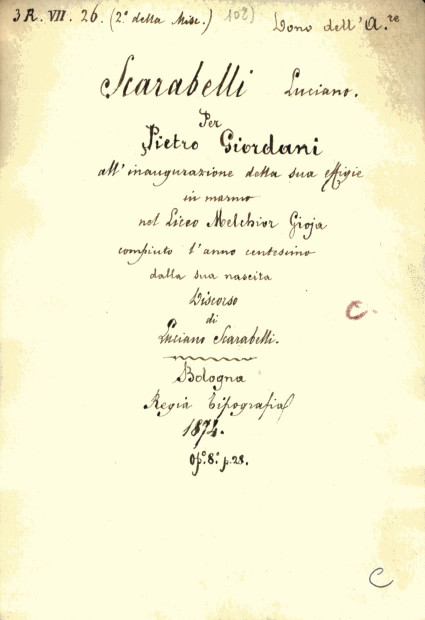 3 R. VII. 26. (2.º della Misc.) 102) Dono dell'A.re
Scarabelli Luciano.
Per
Pietro Giordani
all'inaugurazione della sua effigie
in marmo
nel Liceo Melchior Gioja
compiuto l'anno centesimo
dalla sua nascita
Discorso
di
Luciano Scarabelli.
Bologna
Regia Tipografia
1874.
Op.º 8.º p. 28.
C.
C